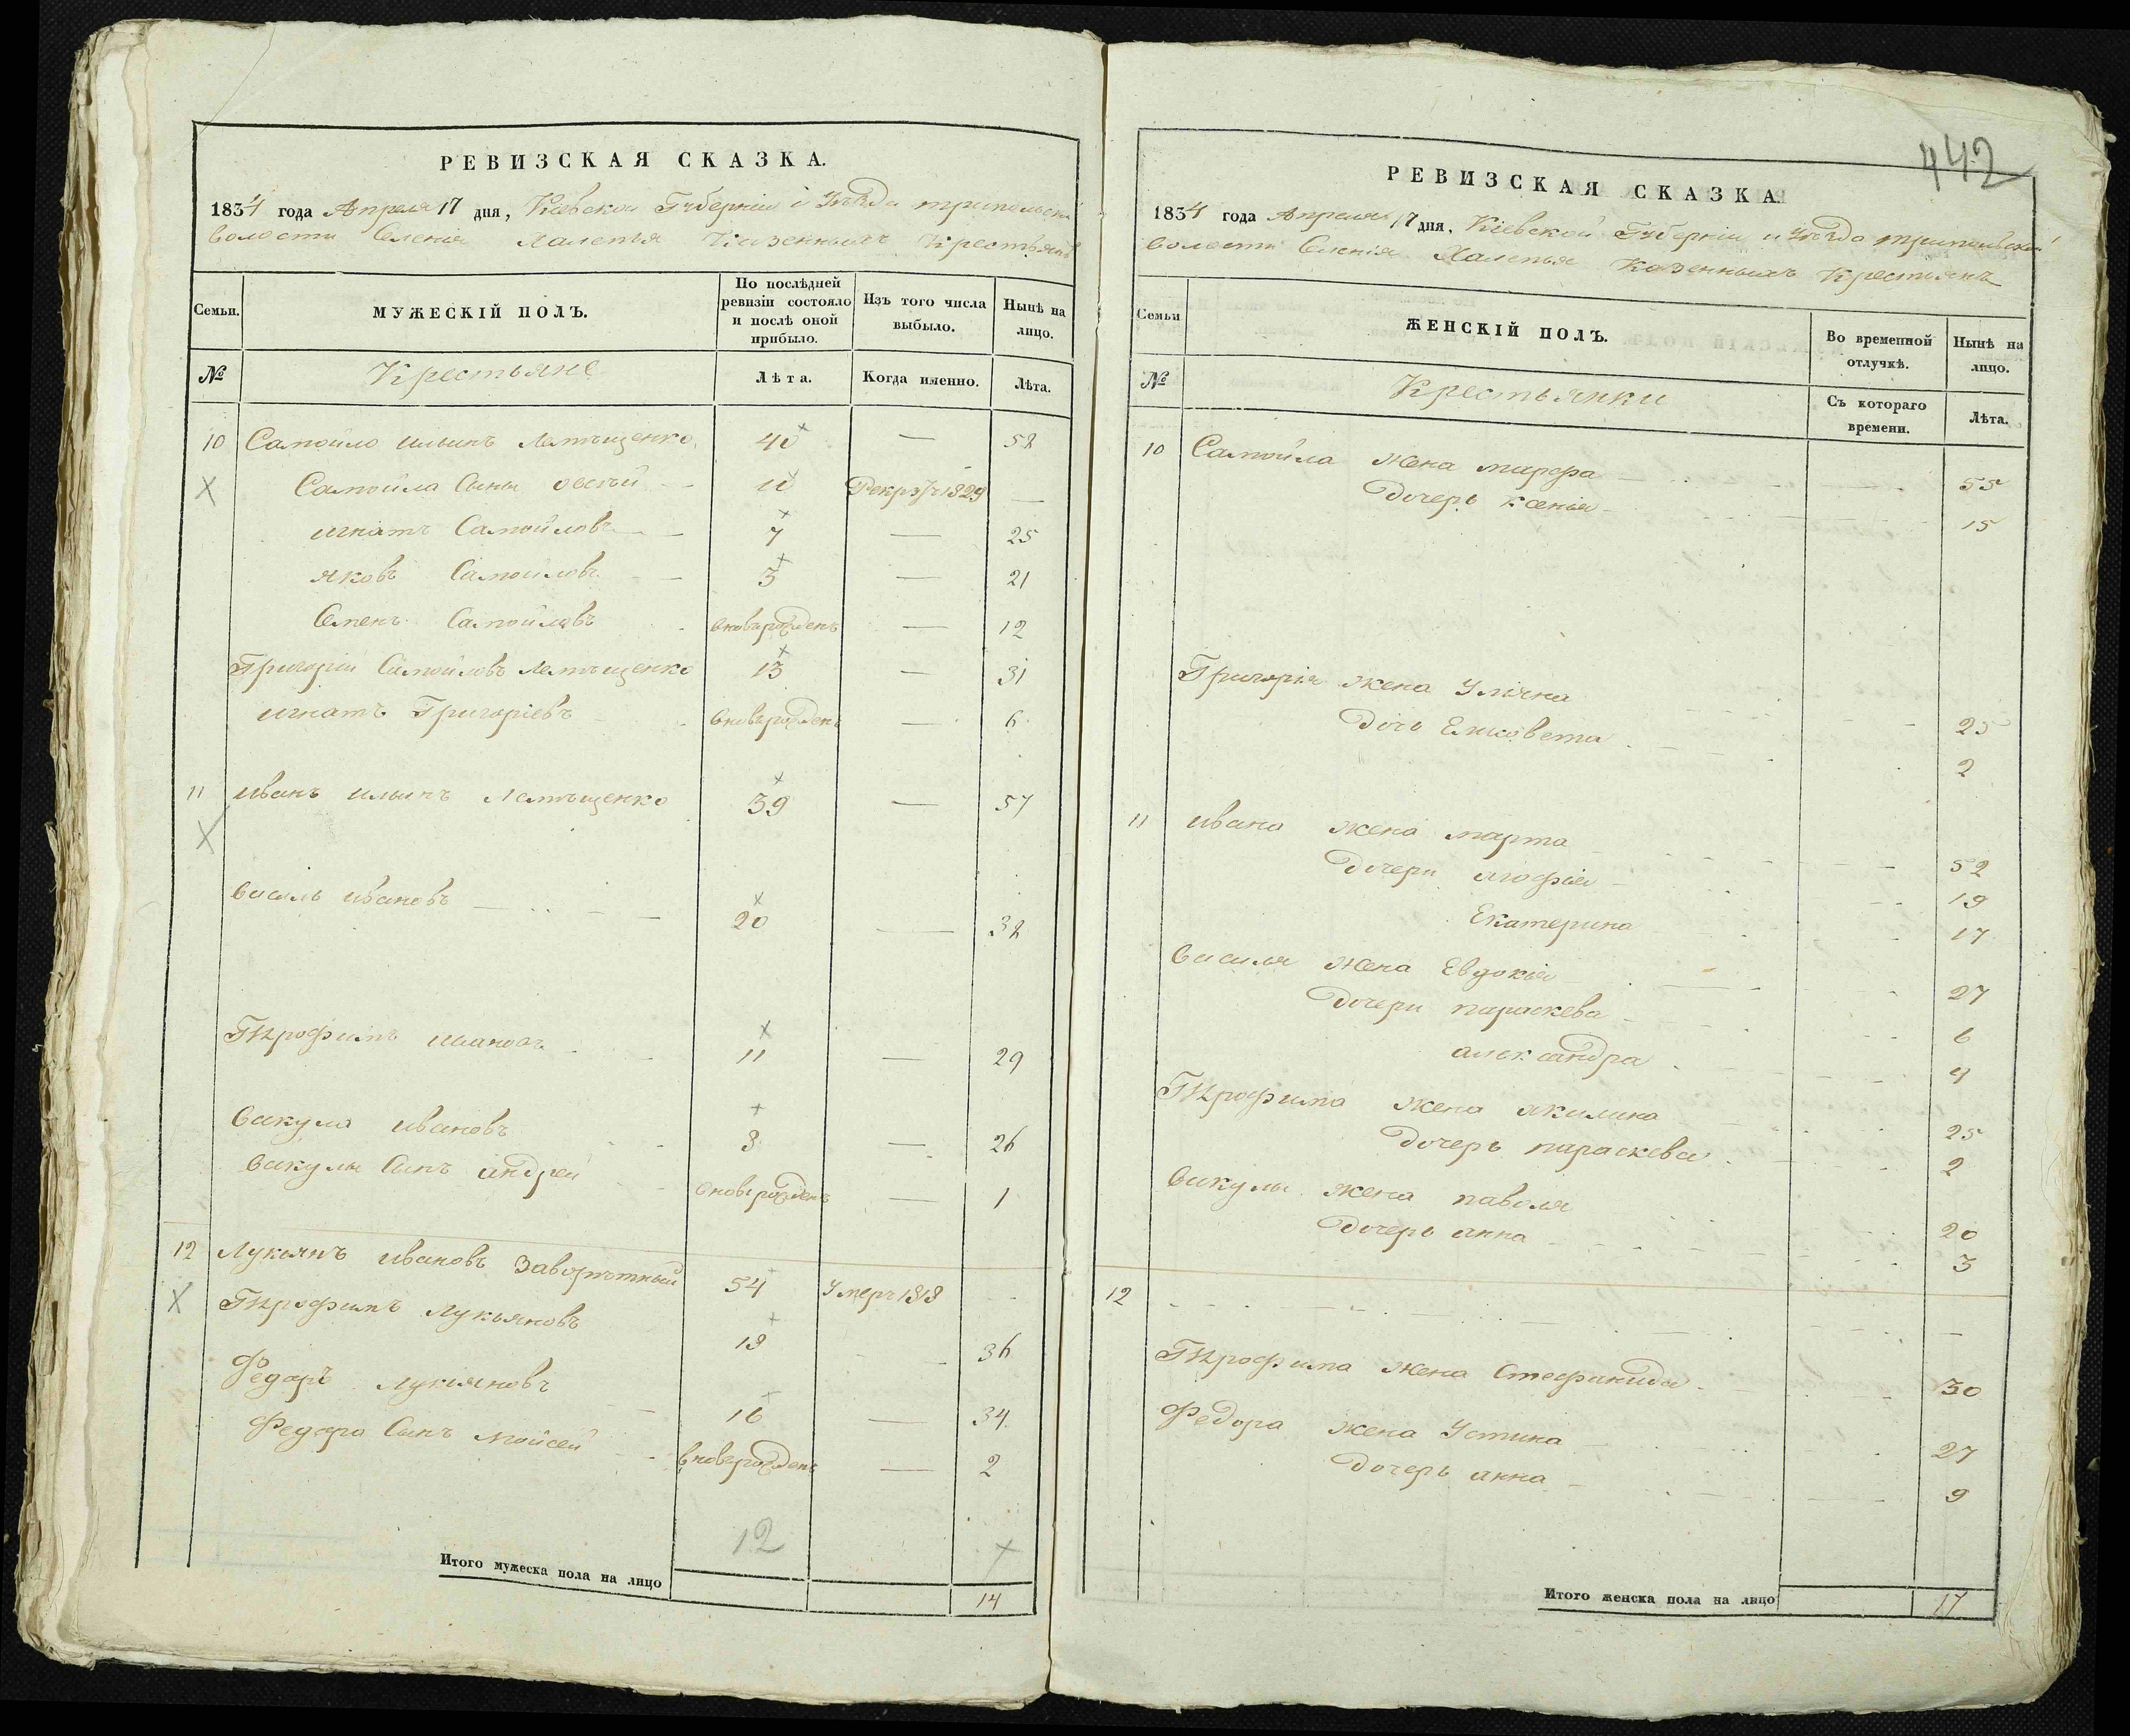 РЕВИЗСКАЯ СКАЗКА.
1834 года Апреля 17 дня, Киевской Губернии и Уезда трипольской
волости Селения Халепья Казенныхъ Крестьянъ
Семьи.
МУЖЕСКІЙ ПОЛЪ.
По послѣдней ревизіи состояло и послѣ оной прибыло.
Изъ того числа выбыло.
Нынѣ на лицо.
№
Крестьяне
Лѣта.
Когда именно.
Лѣта.
10 Самойло ильинъ 40 — 52
Самойла Сыны овсѣй 11 Рекрут 1829 —
игнатъ Самойловъ 7 — 25
яковъ Самойловъ 3 — 21
Семенъ Самойловъ вновърожденъ — 12
Григорій Самойловъ 13 — 31
игнатъ Григоріевъ вновърожденъ — 6
11 иванъ ильинъ 39 — 57
василь ивановъ 20 — 32
Трофимъ ивановъ 11 — 29
вакула ивановъ 8 — 26
вакулы Сынъ андрей вновърожденъ — 1
12 Лукьянъ ивановъ Заворотный 54 Умеръ 1818
Трофимъ Лукьяновъ 18 — 36
Федоръ Лукьяновъ 16 — 34
Федора Сынъ мойсей вновърожденъ — 2
12
Итого мужеска пола на лицо 14
442
РЕВИЗСКАЯ СКАЗКА.
1834 года Апреля 17 дня, Кіевской Губерніи и Уезда трипольской
волости Сленія Халепья Казенныхъ Крестьянъ
Семьи
ЖЕНСКІЙ ПОЛЪ.
Во временной отлучкѣ.
Нынѣ на лицо.
№
Крестьянки
Съ котораго времени.
Лѣта.
10 Самойла жена марфа — 55
Дочерь ксенья 15
Григорія жена Уліяна 25
Дочь Елисовета 2
11 ивана жена марта 52
Дочери агофія 19
Екатерина 17
василя жена Евдокія 27
Дочери параскева 6
александра 4
Трофима жена акилина 25
Дочерь параскева 2
вакулы жена паволя 20
Дочерь анна 3
12 —
Трофима жена Стефанида 30
Федора жена Устина 27
Дочерь анна 9
Итого женска пола на лицо 17